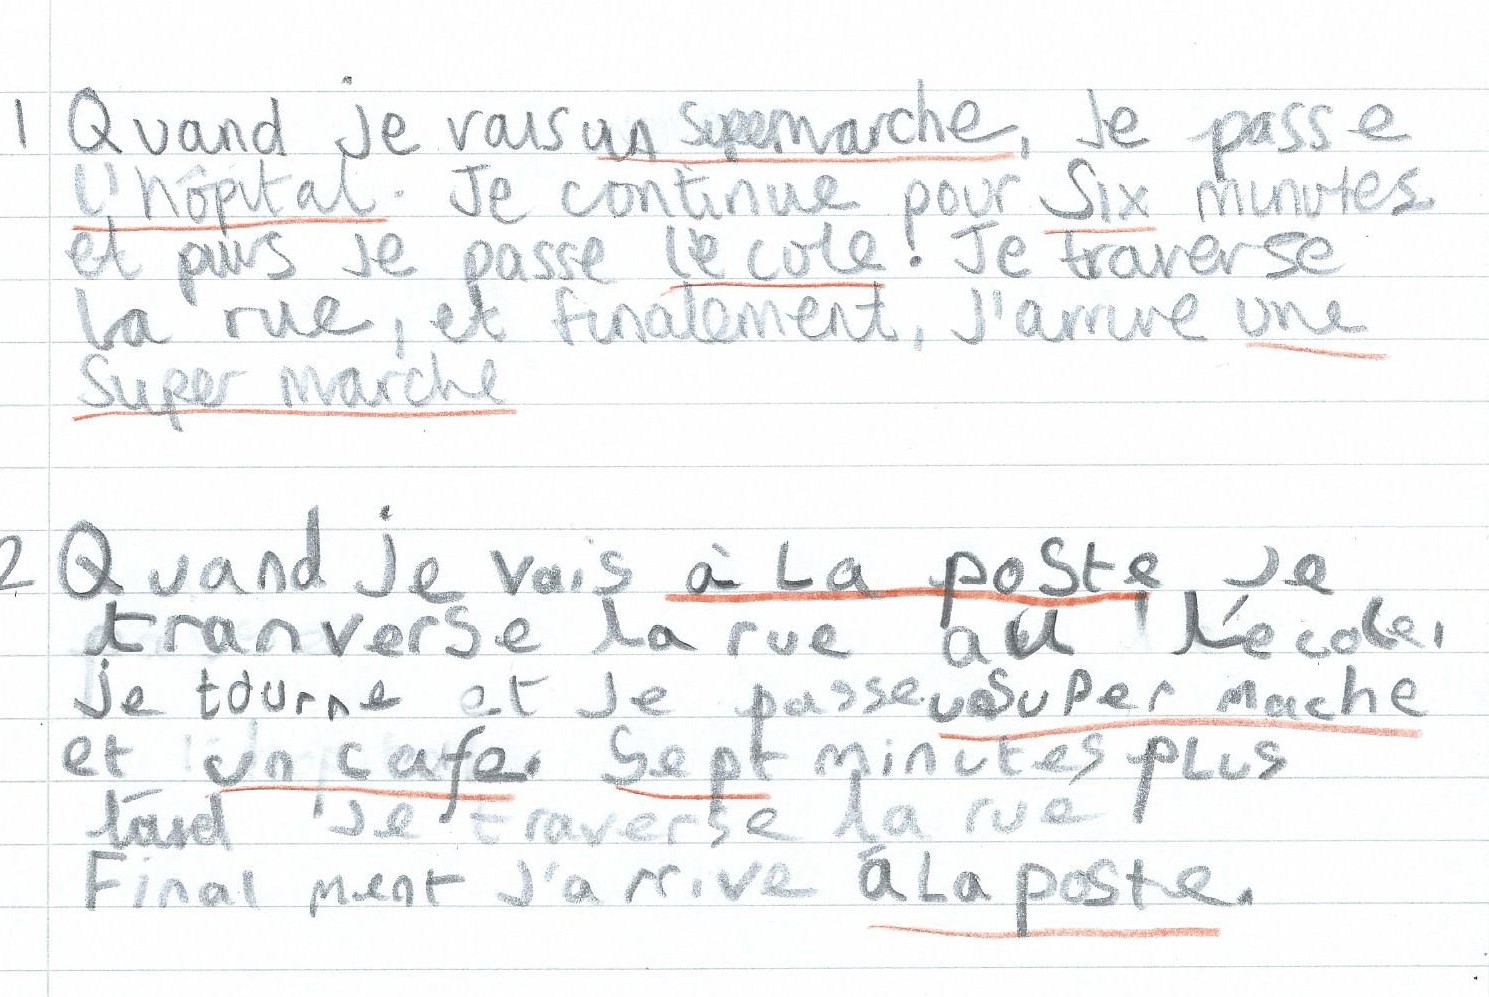 1 Quand je vais un supermarche, Je passe
l'hôpital. Je continue pour Six minutes
et puis je passe l'ecole! Je traverse
la rue, et finalement, J'arrive une
Super marche
2 Quand je vais à La poste Je
tranverse la rue au L'ecole,
je tourne et Je passe Super mache
et un cafe. Sept minutes plus
tard Je traverse la rue
Final ment J'arrive à La poste.